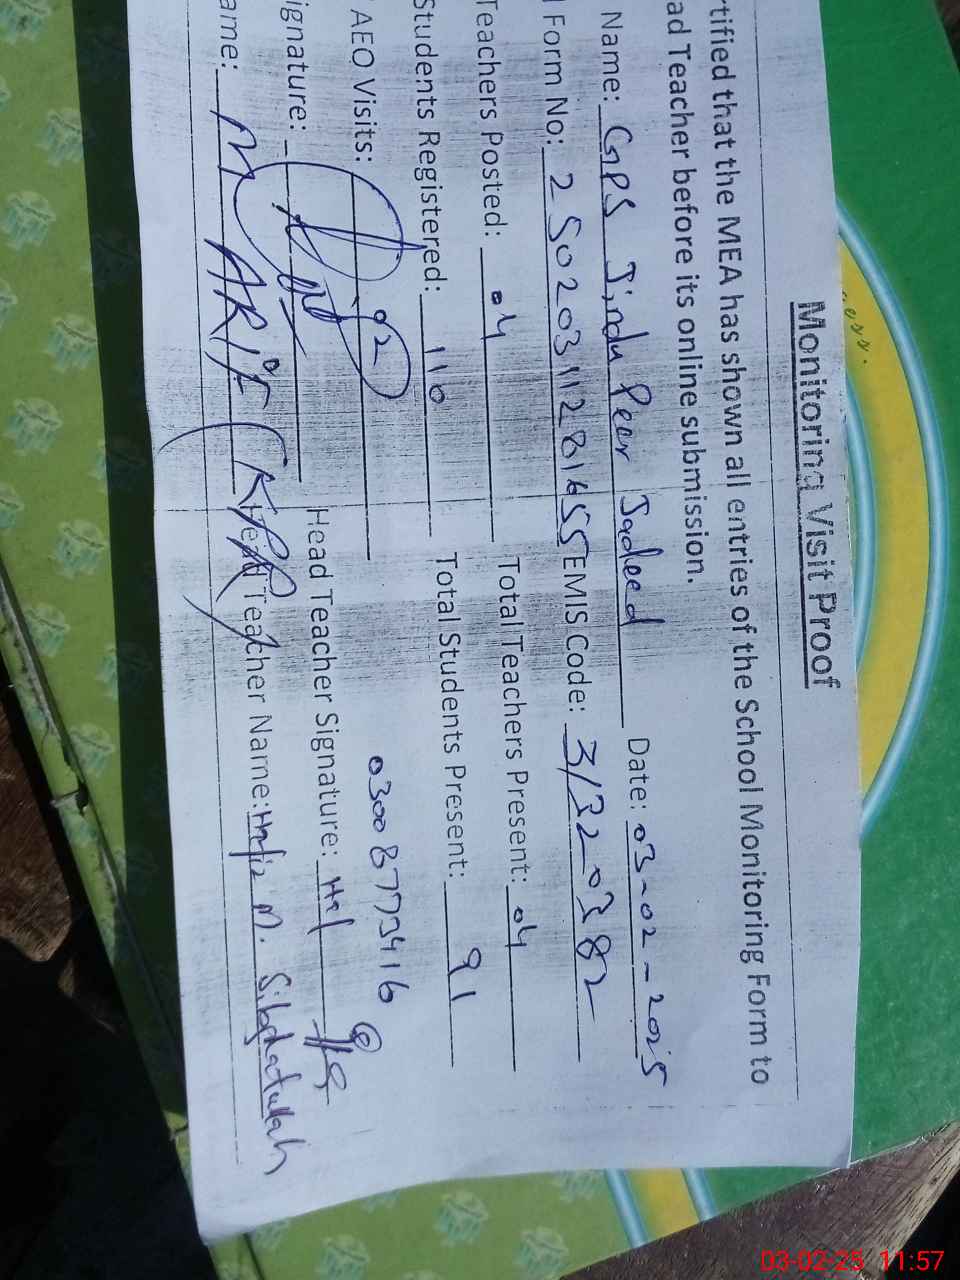 Monitoring Visit Proof
rtified that the MEA has shown all entries of the School Monitoring Form to
ad Teacher before its online submission.
Name: GPS Jindu Peer Jadeed Date: 03-02-2025
Form No: 25020311281655 EMIS Code: 31320382
Teachers Posted: 04 Total Teachers Present: 04
Students Registered: 110 Total Students Present: 91
AEO Visits: 02 03008773416
ignature: Head Teacher Signature:
ame: M ARIF Head Teacher Name: Hafiz M. Sibghatullah
03-02-25 11:57